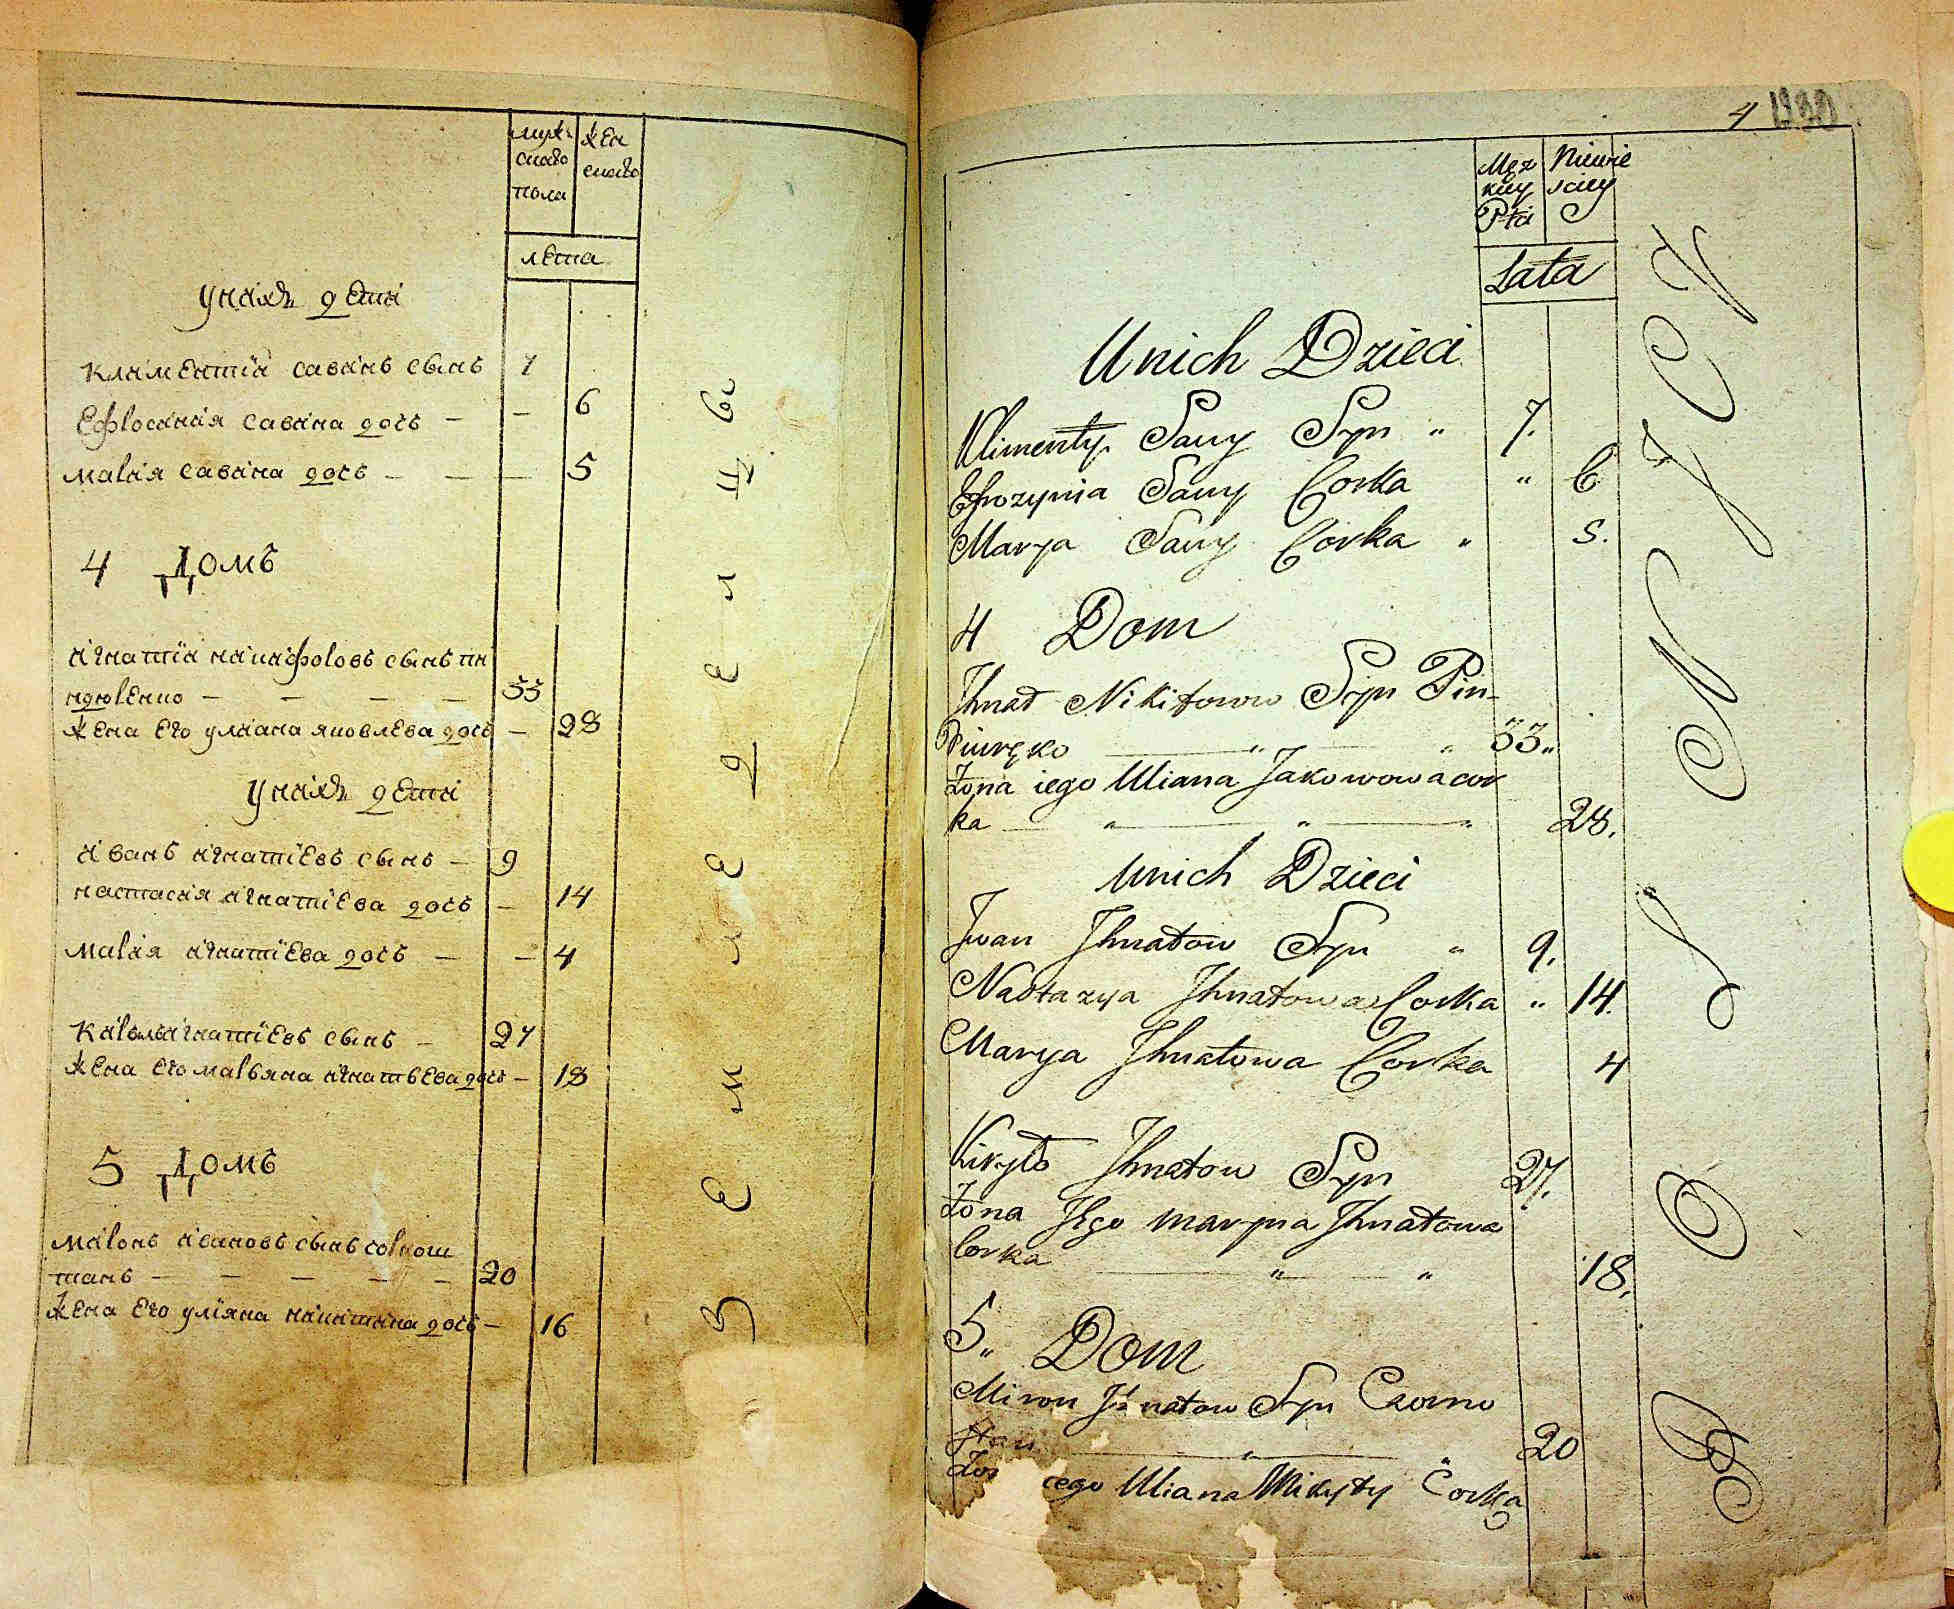 муж:
скаго
пола
жен
скаго
лета
у них дети
климентiи савин сынъ 7
Ефросиния савина дочь — — 6
мария савина дочь — — — 5
4 Домъ
игнатiи никифоровъ сынъ пи
ндюренко — — — — 33
жена его улиана яковлева дочь — 28
у них дети
иванъ игнатiевъ сынъ — 9
настасия игнатiева дочь — 14
мария игнатiева дочь — — 4
кирила игнатiевъ сынъ — 27
жена его марьяна игнатьева дочь — 18
5 Домъ
миронъ ивановъ сынъ чорнош
танъ — — — — — 20
жена его улiяна никитина дочь — 16
земледелцы
4
Męz
kiey
Płci
Niewie
sciey
Lata
Unich Dzieci
Klimenty Sawy Syn „ 7.
Efrozynia Sawy Corka „ 6
Marya Sawy Corka „ 5.
4 Dom
Ihnat Nikitowu Syn Pin-
Diuręko „ „ 33„
Żona iego Uliana Jakowowa cor
ka „ „ „ 28.
Unich Dzieci
Iwan Ihnatow Syn „ 9.
Nastazya Ihnatowa Corka „ 14.
Marya Ihnatowa Corka 4
Kiryło Ihnatow Syn 27.
Żona Jego maryna Ihnatowa
Corka „ „ 18.
5„ Dom
Miron Ihnatow Syn Czorno
sztan „ „ 20
iego Uliana Mikyty Corka
ROLNICY